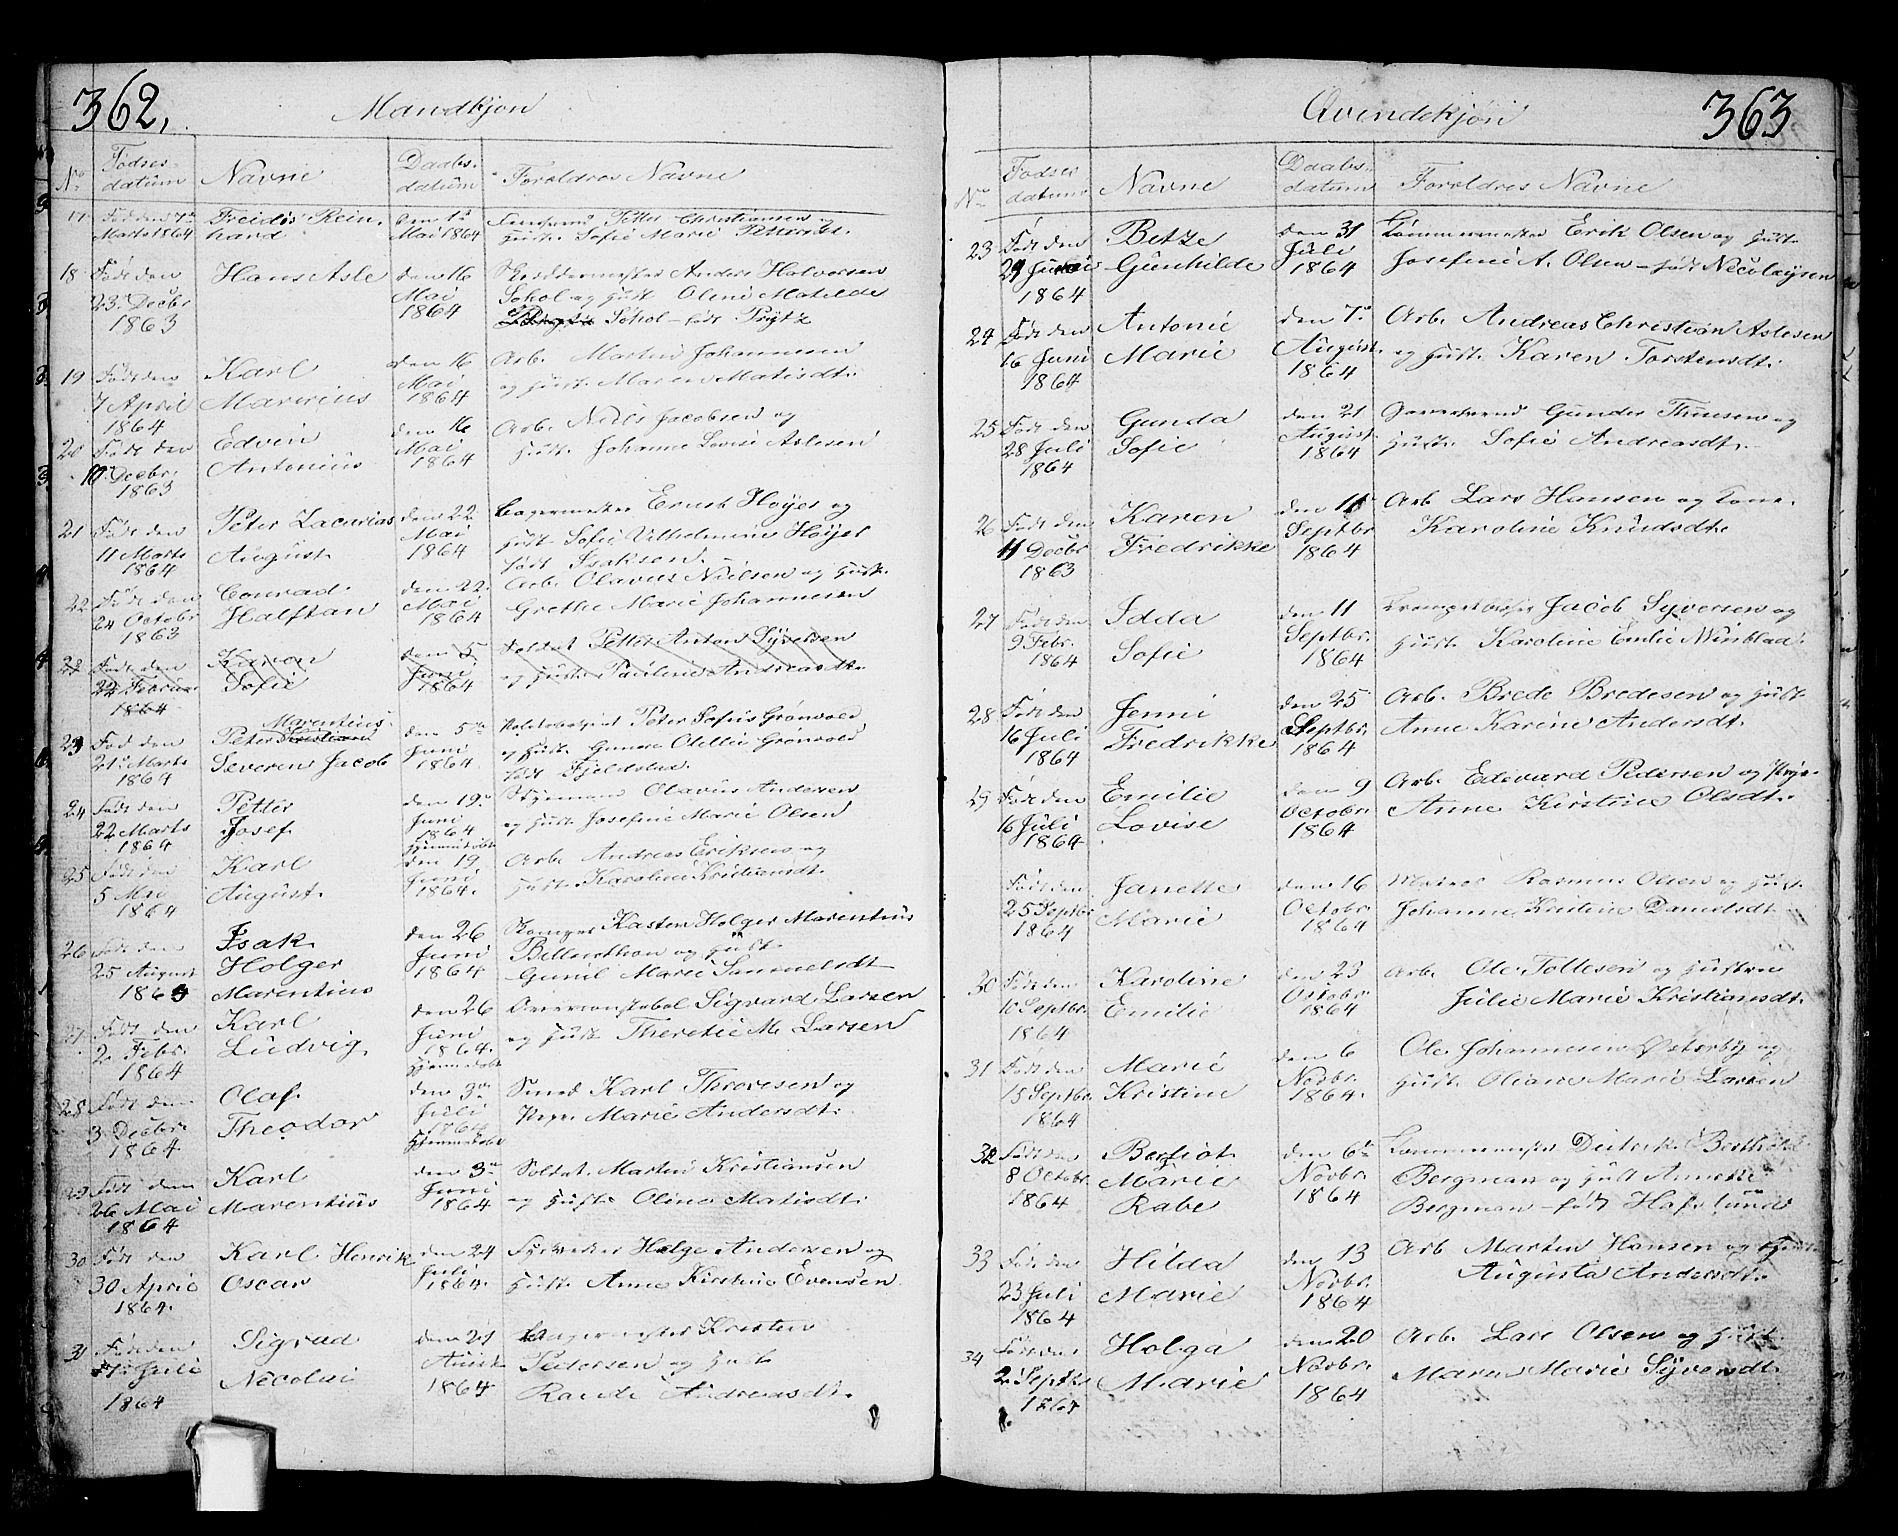 362,
Mandkjøn
No Fødses- datum Navne Daabs- datum Forældres Navne
17 Fød den 7de Marts 1864 Freidis Rein- hard den 1ste Mai 1864 Petter Christiansen og Hust. Sofie Marie
18 Født den 23de Decbr 1863 Hans Asle den 16 Mai 1864 Skræddermester Anders Halvorsen
Sohol og Hust. Oline Matilde
Sohol - født Prytz
19 Født den 7 April 1864 Karl Marinius den 16 Mai 1864 Arb. Martin Johannesen
og Hust. Maren Matisdt.
20 Født den 10 Decbr. 1863 Edvin Antonius den 16 Mai 1864 Arb. Niels Jacobsen og
Hust. Johanne Lovise Aslesen
21 Født den 11 Marts 1864 Peter Zacarias August den 22 Mai 1864 Bagermester Ernst Høyer og
Hust. Sofie Vilhelmine Høyer
født Isaksen.
22 Født den 24 Octobr 1863 Conrad Halftan den 22 Mai 1864 Arb. Olavus Nielsen og Hust.
Grethe Marie Johannesen
Født den 22 Februar 1864 Karen Sofie den 5 Juni 1864 Soldat Petter Anton Syversen
og Hust. Pauline Andreasdt.
23 Fød den 21de Marts 1864 Peter Marentius Severin Jacob den 5te Juni 1864 Peter Sofus Grønvold
og Hust. Gunda Otellie Grønvold
født Fjeldstad.
24 Født den 22 Marts 1864 Petter Josef den 19de Juni 1864 Hjemmedøbt Styrmand Olavus Andersen
og Hust. Josefine Marie Olsen
25 Født den 5 Mai 1864 Karl August. den 19 Juni 1864. Arb. Andreas Eriksen og
Hust. Karoline Kristiansdt.
26 Født den 25 August Isak Holger Marentius den 26 Juni 1864 Kasten Holger Marentius
og Hust.
Gunil Marie Samuelsdt
27 Født den 2 Febr. 1864 Karl Ludvig, den 26 Juni 1864. Hjemmedøbt Sigvard Larsen
og Hust. Theretie M. Larsen
28 Født den 3 Decbr. 1864 Olaf Theodor den 3die Juli 1864 Hjemmedøbt Smed Karl Thoresen og
Pige Marie Andersdt.
29 Født den 26 Mai 1864 Karl Marentius den 3die Juni 1864 Soldat Martin Kristiansen
og Hust. Oline Matisdt.
30 Født den 30 April 1864. Karl Henrik Oscar den 24 Juli 1864. Helge Andersen og
Hust. Anne Kirstine Evensen
31 Født den Juli 1864 Sigvad Nicolai den 21 August 1864 Bagermester Kristen
Petersen og Hust.
Randi Andreasdt.
363
Qvindekjøn
No Fødses datum Navne Daabs- datum Forældres Navne
23 Født den 29 1864 Betze Gunhilde den 31 Juli 1864 Tømmermester Erik Olsen og Hust.
Josefine A. Olsen - født Nicolaysen
24 Født den 16 Juni 1864 Antonie Marie den 7de August 1864 Arb. Andreas Christian Aslesen
og Hust. Karen Torstensdt.
25 Født den 28 Juli 1864 Gunda Sofie den 21 August. 1864 Gunder Thuesen og
Hust. Sofie Andreasdt.
26 Født den 11 Decbr 1863 Karen Fredrikke den 11 Septbr 1864 Arb Lars Hansen og Kone
Karoline Knudsdt.
27 Født den 9 Febr. 1864 Idda Sofie den 11 Septbr. 1864 Jacob Syversen og
Hust. Karoline Emilie Münblad.
28 Født den 16 Juli 1864 Jenni Fredrikke den 25 Septbr. 1864 Arb. Brede Bredesen og Hust.
Anne Karine Andersdt.
29 Født den 16 Juli 1864 Emilie Lovise den 9 Octobr 1864 Arb. Edevard Pedersen og Pige
Anne Kirstine Olsdt.
Født den 25 Septbr 1864 Janette Marie den 16 Octobr. 1864 Matros Rasmus Olsen og Hust.
Johanne Kristine Danielsdt.
30 Født den 10 Septbr. 1864 Karoline Emilie den 23 Octobr 1864 Arb. Ole Tollesen og Hustru
Julie Marie Kristiansdt.
31 Født den 15 Septbr. 1864 Marie Kristine den 6 Novbr. 1864. Ole Johannesen Østerby og
Hust. Oliane Marie Larsen
32 Født den 8 Octobr. 1864 Marie Rabe den 6te Novbr. 1864 Deitrik
Bergman og Hust Annette
Bergman - født Hafslund
33 Født den 23 Juli 1864 Hilda Marie den 13 Novbr. 1864 Arb Martin Hansen og
Augusta Andersdt.
34 Født den 2 Septbr. 1864 Holga Marie den 20 Novbr. 1864 Arb. Lars Olsen og Hust.
Maren Marie Syversdt.